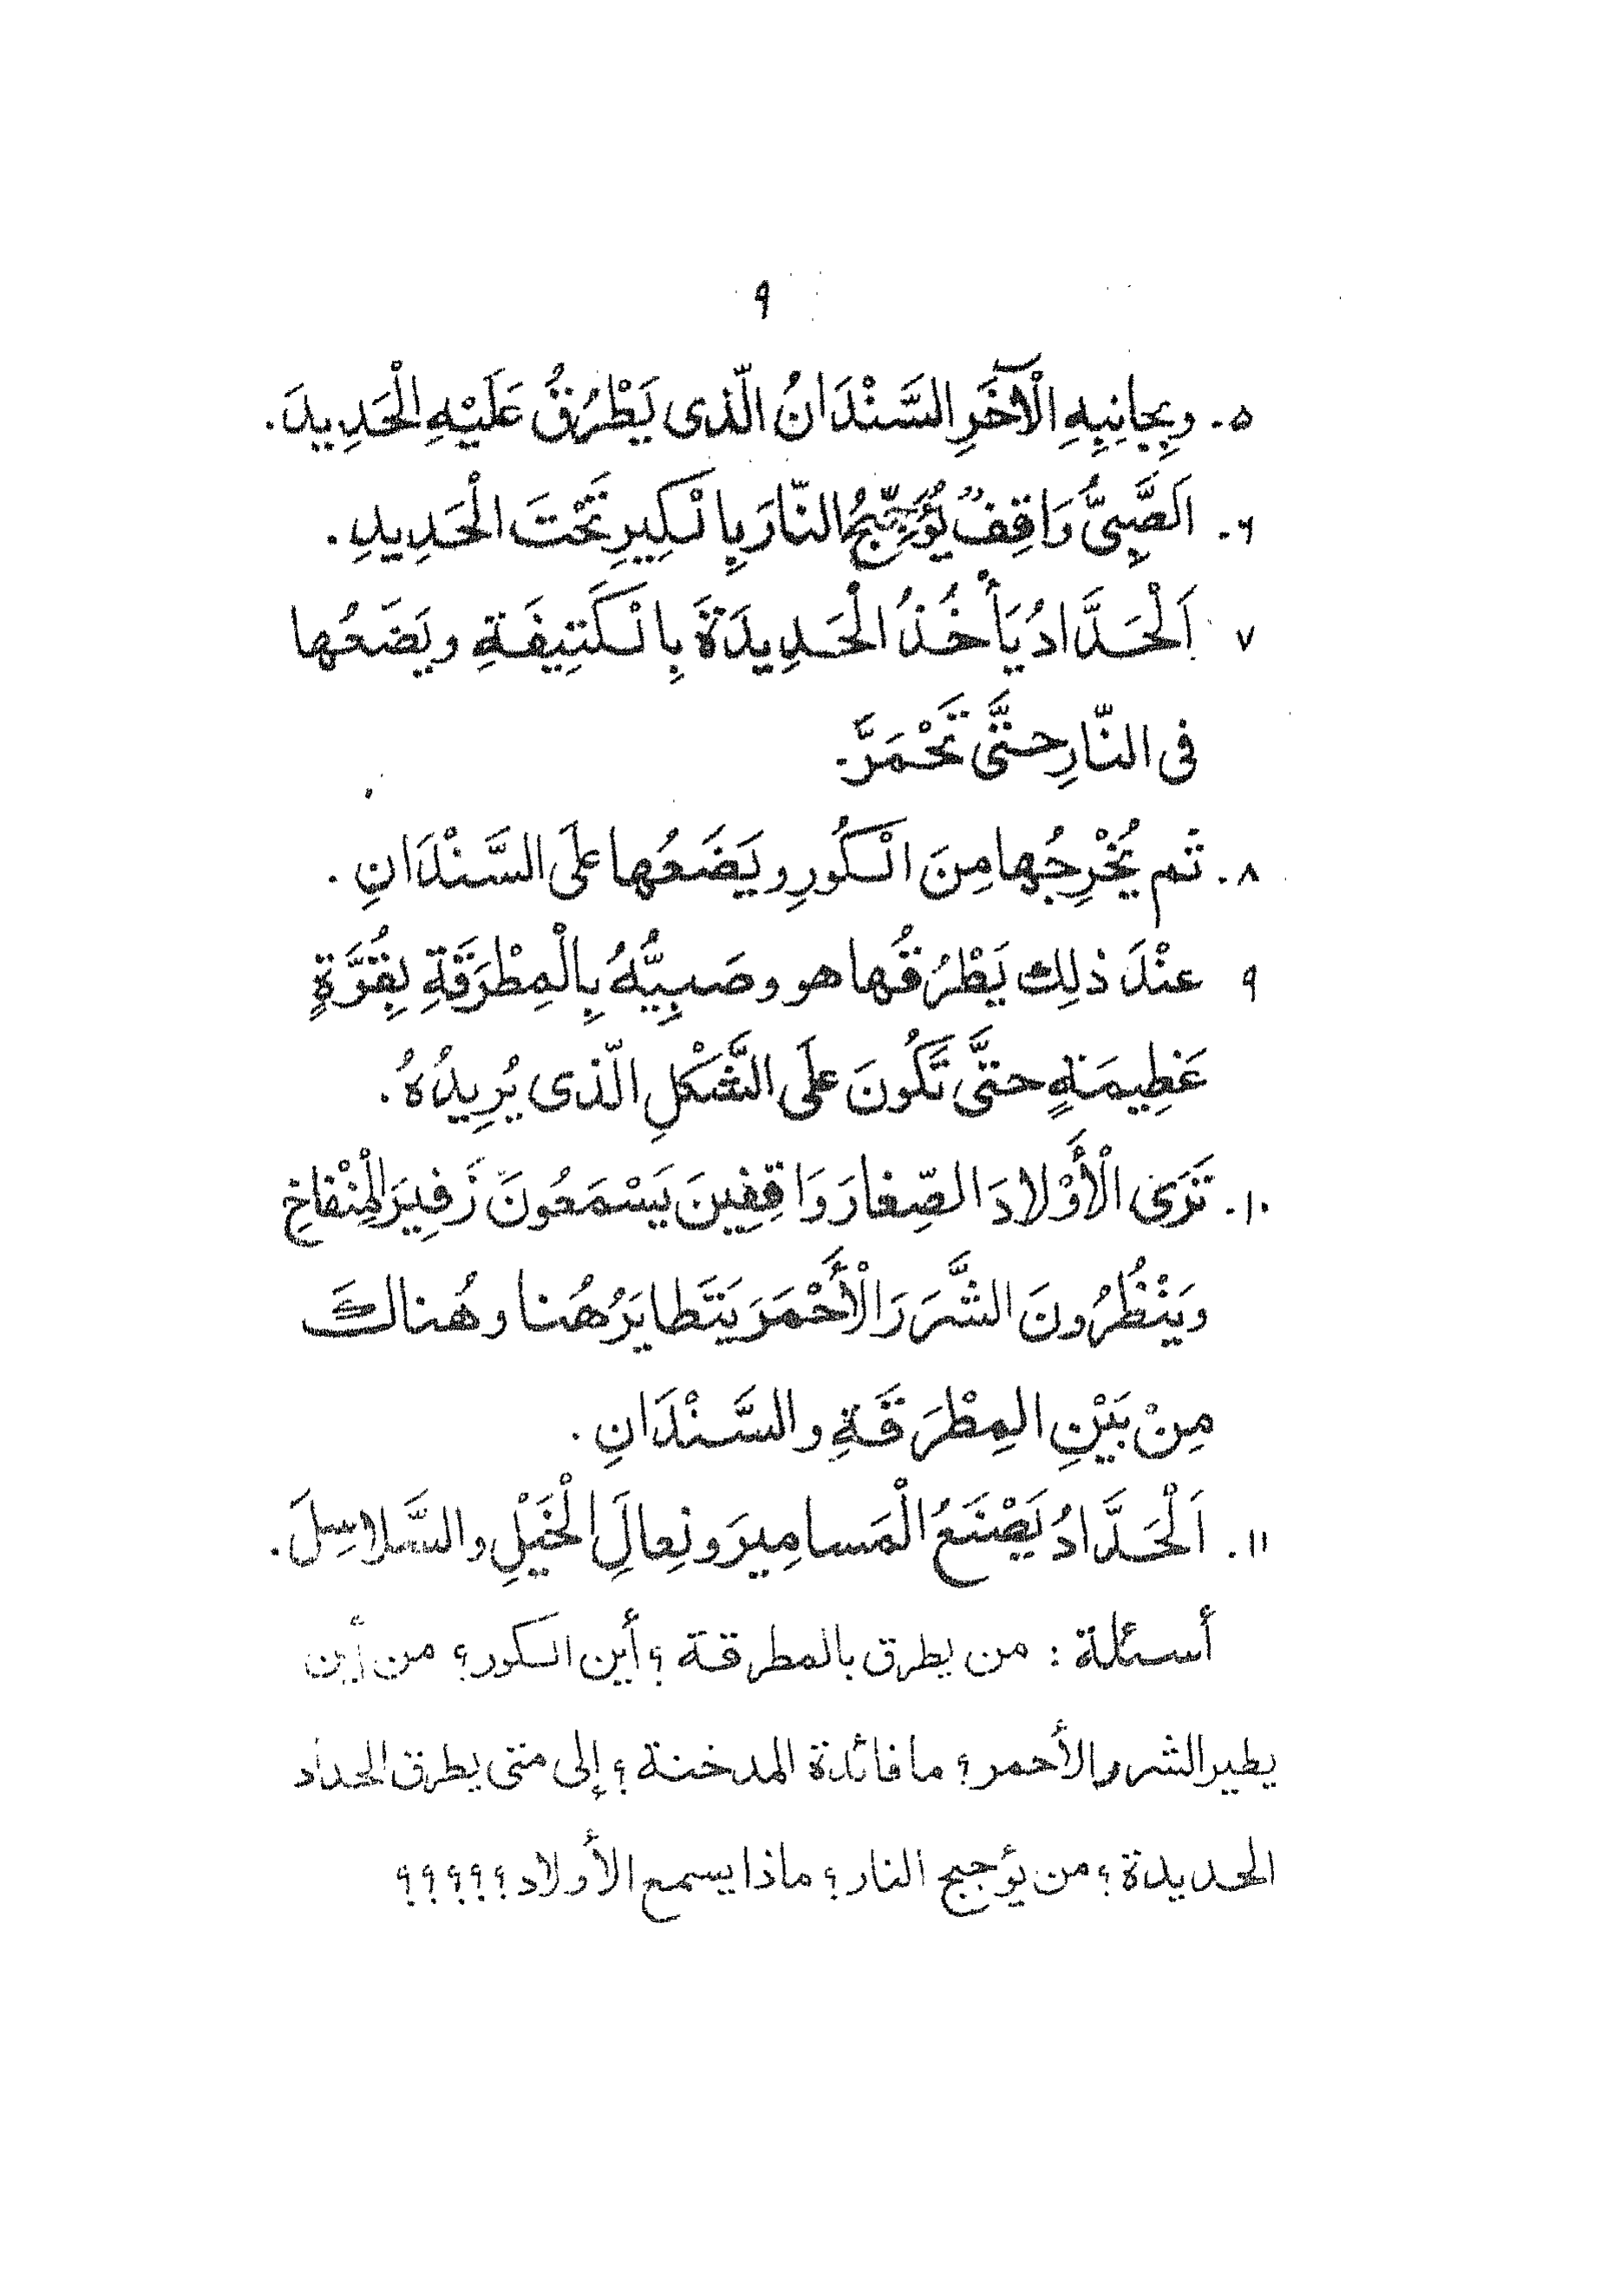 ٩
٥. وبِجانِبِهِ الْآخَرِ السَّنْدَانُ الّذى يَطْرُقُ عَلَيْهِ الْحَدِيدَ.
٦. اَلصَّبِىُّ وَاقِفٌ يُؤَجِّجُ النّارَ بِالْكِيرِ تَحْتَ الْحَدِيدِ.
٧ اَلْحَدَّادُ يَأْخُذُ الْحَدِيدَةَ بِالْكَتِيفَةِ ويَضَعُها
فى النّارِ حتَّى تَحْمَرَّ.
٨. ثم يُخْرِجُها مِنَ الْكُورِ ويَضَعُها علَى السَّنْدَانِ.
٩ عنْدَ ذلِك يَطْرُقُها هو وصَبِيُّهُ بِالْمِطْرَقَةِ بِقُوَّةٍ
عَظِيمَةٍ حتَّى تَكُونَ علَى الشَّكْلِ الّذى يُرِيدُهُ.
١٠. تَرَى الْأَوْلادَ الصِّغارَ وَاقِفِينَ يَسْمَعُونَ زَفِيرَ الْمِنْفاخِ
وَيَنْظُرُونَ الشَّرَرَ الْأَحْمَرَ يَتَطايَرُ هُنا وهُناكَ
مِنْ بَيْنِ المِطْرَقَةِ والسَّنْدَانِ.
١١. اَلْحَدَّادُ يَصْنَعُ الْمَسامِيرَ ونِعالَ الْخَيْلِ والسَّلاسِلَ.
أسئلة : من يطرق بالمطرقة ؟ أين الكور ؟ من أين
يطير الشرر الأحمر ؟ ما فائدة المدخنة ؟ إلى متى يطرق الحداد
الحديدة ؟ من يؤجج النار ؟ ماذا يسمع الأولاد ؟ ؟ ؟ ؟ ؟